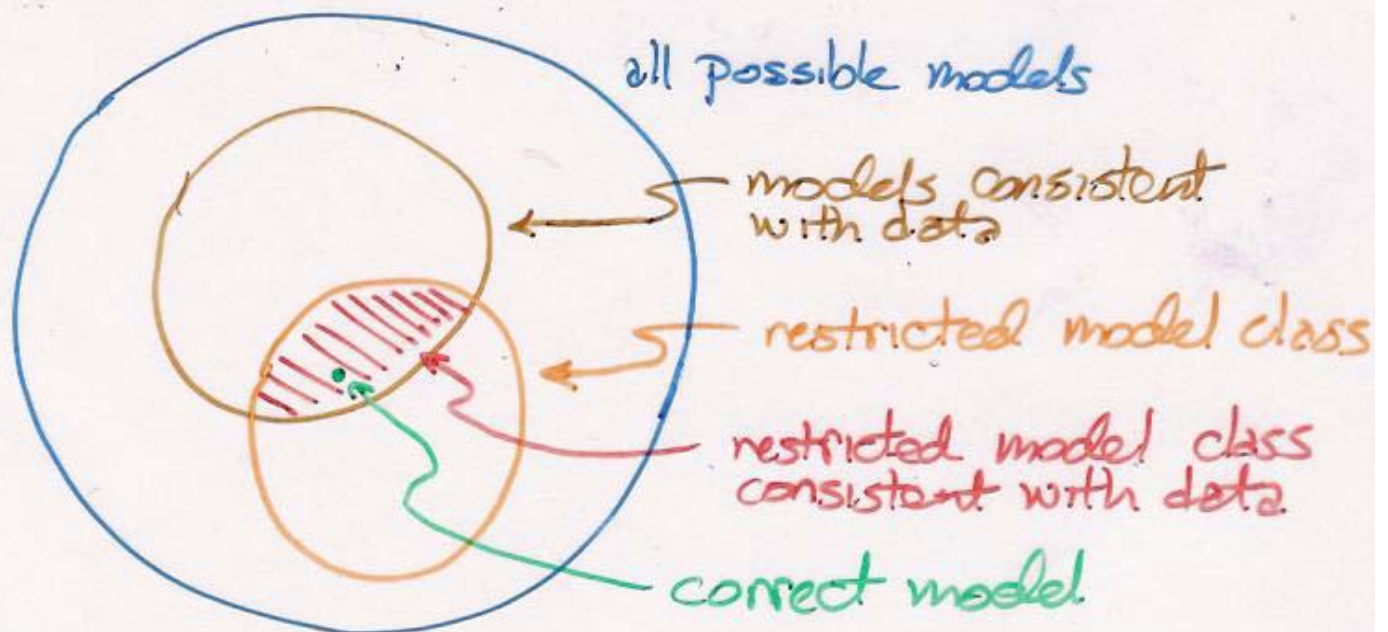 all possible models
models consistent
with data
restricted model class
restricted model class
consistent with data
correct model